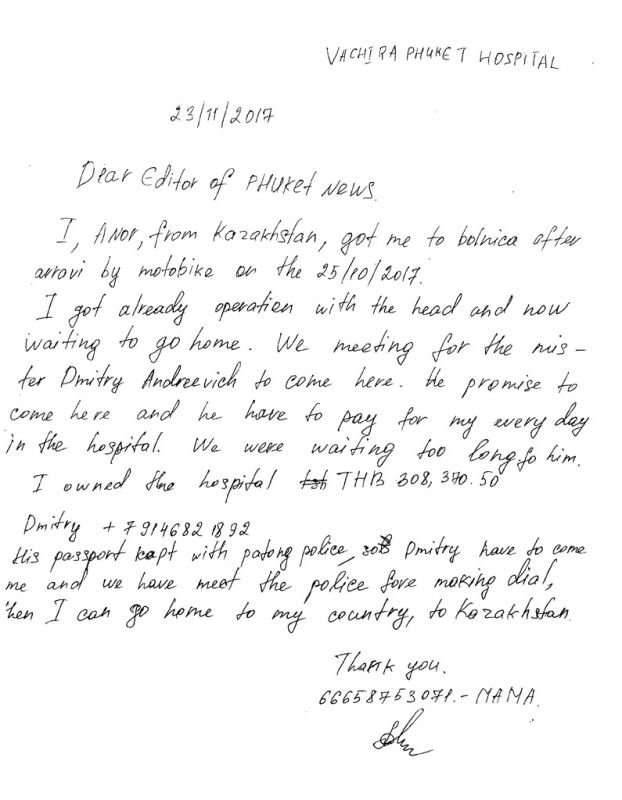 VACHIRA PHUKET HOSPITAL
23/11/2017
Dear Editor of PHUKET NEWS.
I, ANOR, from Kazakhstan, got me to bolnica after
arravi by motobike on the 25/10/2017.
I got already operation with the head and now
waiting to go home. We meeting for the mis-
ter Dmitry Andreevich to come here. He promise to
come here and he have to pay for my every day
in the hospital. We were waiting too long fo him.
I owned the hospital THB 308,370.50
Dmitry +7 914682 1892
His passport kept with patong police, Dmitry have to come
me and we have meet the police fore making dial,
then I can go home to my country, to Kazakhstan.
Thank you.
66658753071.- MAMA.